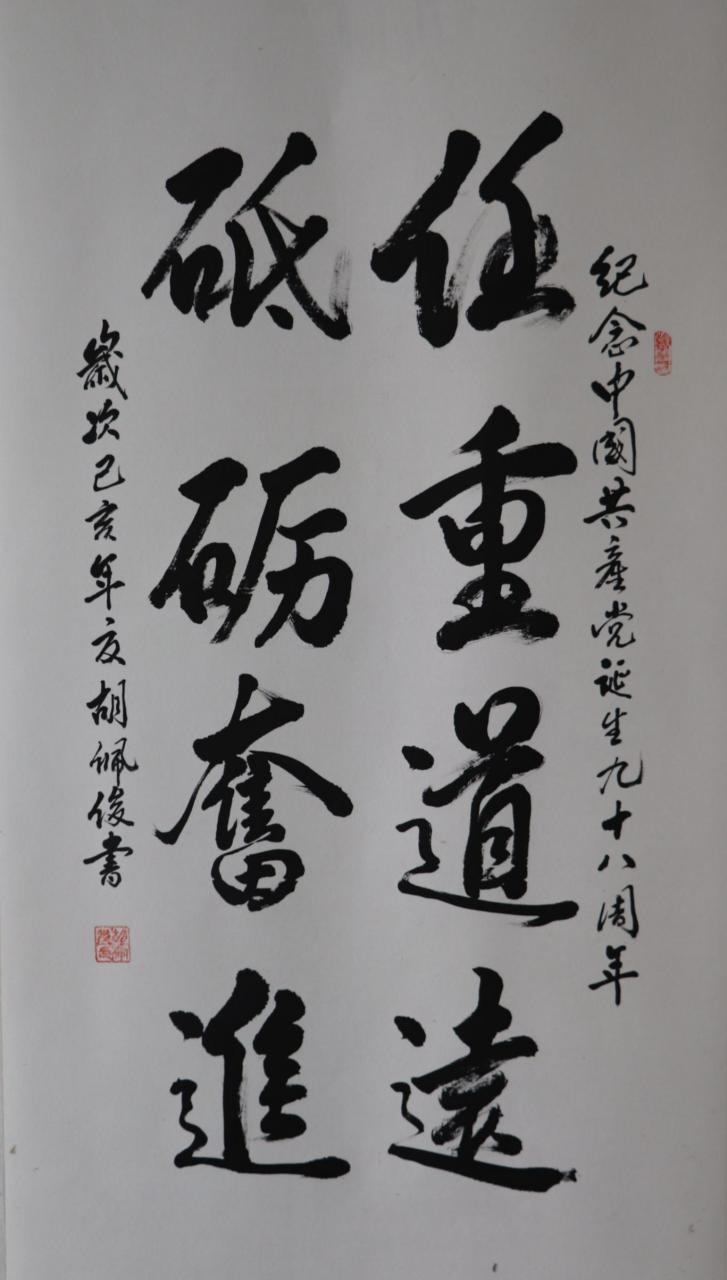 紀念中國共產党诞生九十八周年
任重道遠
砥砺奮進
歲次己亥年夏胡佩俊書